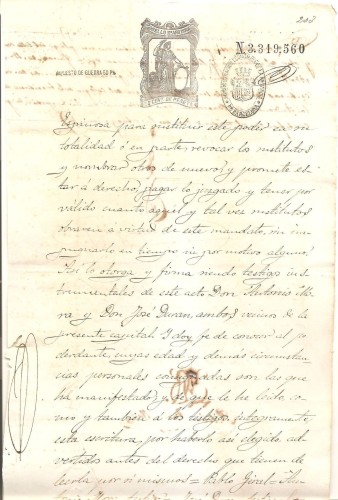 200
N.3.319,560
IMPUESTO DE GUERRA 50 Pta
Espinosa para sustituir este poder en su
totalidad ó en parte, revocar los sustitutos
y nombrar otros de nuevo; y promete es-
tar á derecho, pagar lo juzgado y tener por
válido cuanto aquel y tal vez sustitutos
obraren á virtud de este mandato, sin im-
pugnarlo en tiempo ni por motivo alguno.
Asi lo otorga y firma siendo testigos ins-
trumentales de este acto Don Antonio
y Don José Duran ambos vecinos de la
presente capital. Y doy fe de conocer al po-
derdante, cuyas edad y demás circunstan-
cias personales consignadas son las que
há manifestado; y de que le he leido, co-
mo y tambien á los testigos, integramente
esta escritura, por haberlo asi elegido, ad-
vertidos antes del derecho que tienen de
leerla por si mismos = Pablo